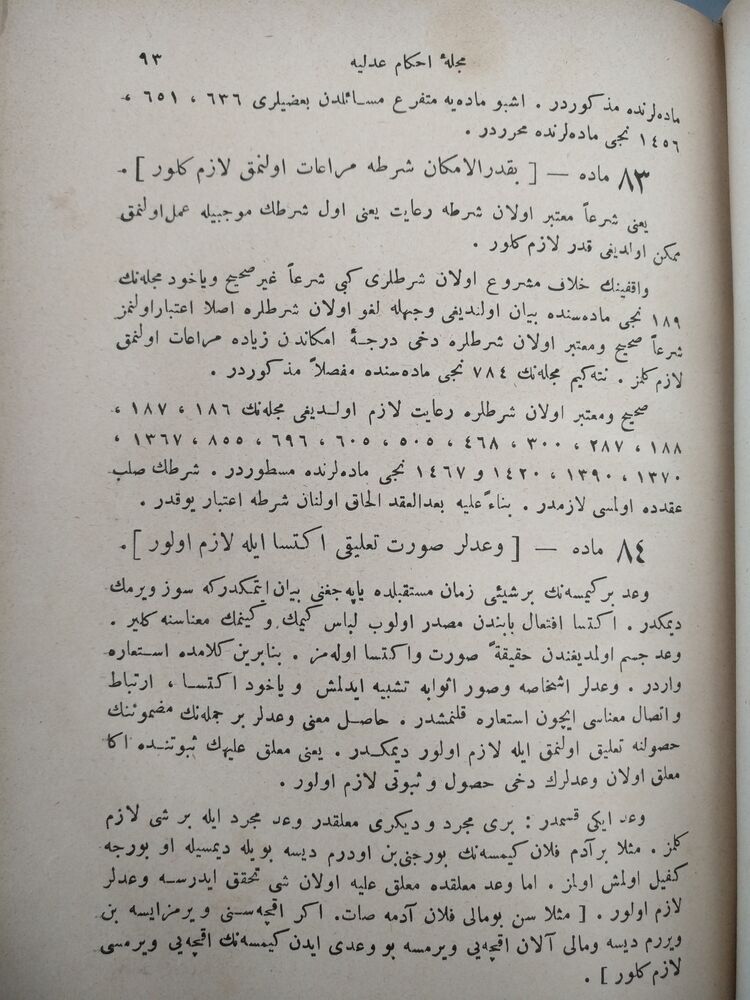 مجلهٔ احكام عدليه ٩٣
ماده‌لرنده مذكوردر . اشبو ماده‌يه متفرع مسائلدن بعضيلرى ٦٣٦ ، ٦٥١ ،
١٤٥٦ نجى ماده‌لرنده محرردر .
٨٣ ماده — [ بقدرالامكان شرطه مراعات اولنمق لازم كلور ] .
يعنى شرعاً معتبر اولان شرطه رعايت يعنى اول شرطك موجبيله عمل اولنمق
ممكن اولديغى قدر لازم كلور .
واقفينك خلاف مشروع اولان شرطلرى كبى شرعاً غير صحيح وياخود مجله‌نك
١٨٩ نجى ماده‌سنده بيان اولنديغى وجهله لغو اولان شرطلره اصلا اعتبار اولنمز
شرعاً صحيح ومعتبر اولان شرطلره دخى درجهٔ امكاندن زياده مراعات اولنمق
لازم كلمز . نته‌كيم مجله‌نك ٧٨٤ نجى ماده‌سنده مفصلاً مذكوردر .
صحيح ومعتبر اولان شرطلره رعايت لازم اولديغى مجله‌نك ١٨٦ ، ١٨٧ ،
١٨٨ ، ٢٨٧ ، ٣٠٠ ، ٤٦٨ ، ٥٠٥ ، ٦٠٥ ، ٦٩٦ ، ٨٥٥ ، ١٣٦٧ ،
١٣٧٠ ، ١٣٩٠ ، ١٤٢٠ و ١٤٦٧ نجى ماده‌لرنده مسطوردر . شرطك صلب
عقدده اولمسى لازمدر . بناءً عليه بعدالعقد الحاق اولنان شرطه اعتبار يوقدر .
٨٤ ماده — [ وعدلر صورت تعليقى اكتسا ايله لازم اولور ] .
وعد بر كيمسه‌نك بر شيئى زمان مستقبلده ياپه‌جغنى بيان ايتمكدركه سوز ويرمك
ديمكدر . اكتسا افتعال بابندن مصدر اولوب لباس كيمك و كينمك معناسنه كلير .
وعد جسم اولمديغندن حقيقةً صورت واكتسا اوله‌مز . بنابرين كلامده استعاره
واردر . وعدلر اشخاصه وصور اثوابه تشبيه ايدلمش و ياخود اكتسا ، ارتباط
و اتصال معناسى ايچون استعاره قلنمشدر . حاصل معنى وعدلر بر جمله‌نك مضموننك
حصولنه تعليق اولنمق ايله لازم اولور ديمكدر . يعنى معلق عليهك ثبوتنده اكا
معلق اولان وعدلرك دخى حصول و ثبوتى لازم اولور .
وعد ايكى قسمدر : برى مجرد و ديكرى معلقدر وعد مجرد ايله بر شى لازم
كلمز . مثلا بر آدم فلان كيمسه‌نك بورجنى بن اودرم ديسه بويله ديمسيله او بورجه
كفيل اولمش اولمز . اما وعد معلقده معلق عليه اولان شى تحقق ايدرسه وعدلر
لازم اولور . [ مثلا سن بومالى فلان آدمه صات. اكر اقچه‌سنى ويرمزايسه بن
ويررم ديسه ومالى آلان اقچه‌يى ويرمسه بو وعدى ايدن كيمسه‌نك اقچه‌يى ويرمسى
لازم كلور ] .